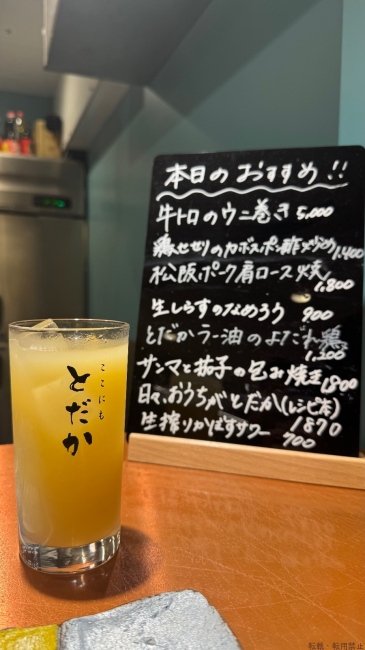 本日のおすすめ!!
牛トロのウニ巻き 5,000
鶏せせりのカボスポン酢 1,400
松阪ポーク肩ロース焼 1,800
生しらすのなめろう 900
とだかラー油のよだれ鶏 1,200
サンマと茄子の包み焼き 1800
日々、おうちがとだか(レシピ本) 1870
生搾りかぼすサワー 700
ここにも
とだか
転載・転用禁止